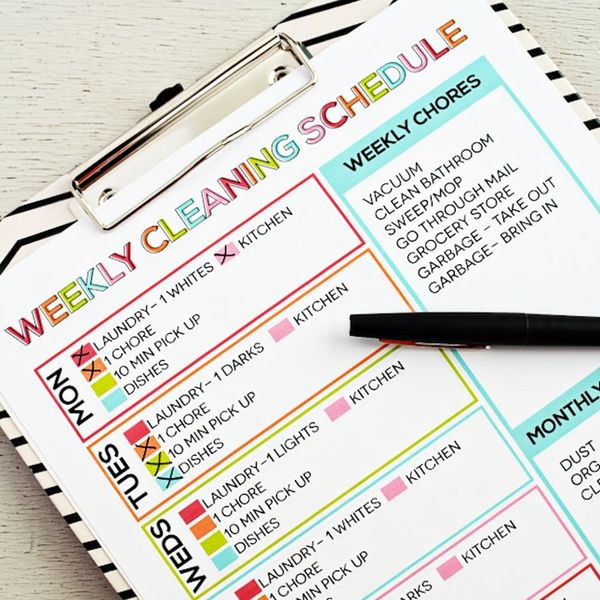 WEEKLY CLEANING SCHEDULE
MON
LAUNDRY- 1 WHITES KITCHEN
1 CHORE
10 MIN PICK UP
DISHES
TUES
LAUNDRY- 1 DARKS KITCHEN
1 CHORE
10 MIN PICK UP
DISHES
WEDS
LAUNDRY-1 LIGHTS KITCHEN
1 CHORE
10 MIN PICK UP
DISHES
LAUNDRY- 1 WHITES KITCHEN
1 CHORE
10 MIN PICK UP
LAUNDRY- KITCHEN
WEEKLY CHORES
VACUUM
CLEAN BATHROOM
SWEEP/MOP
GO THROUGH MAIL
GROCERY STORE
GARBAGE - TAKE OUT
GARBAGE- BRING IN
MONTHLY
DUST